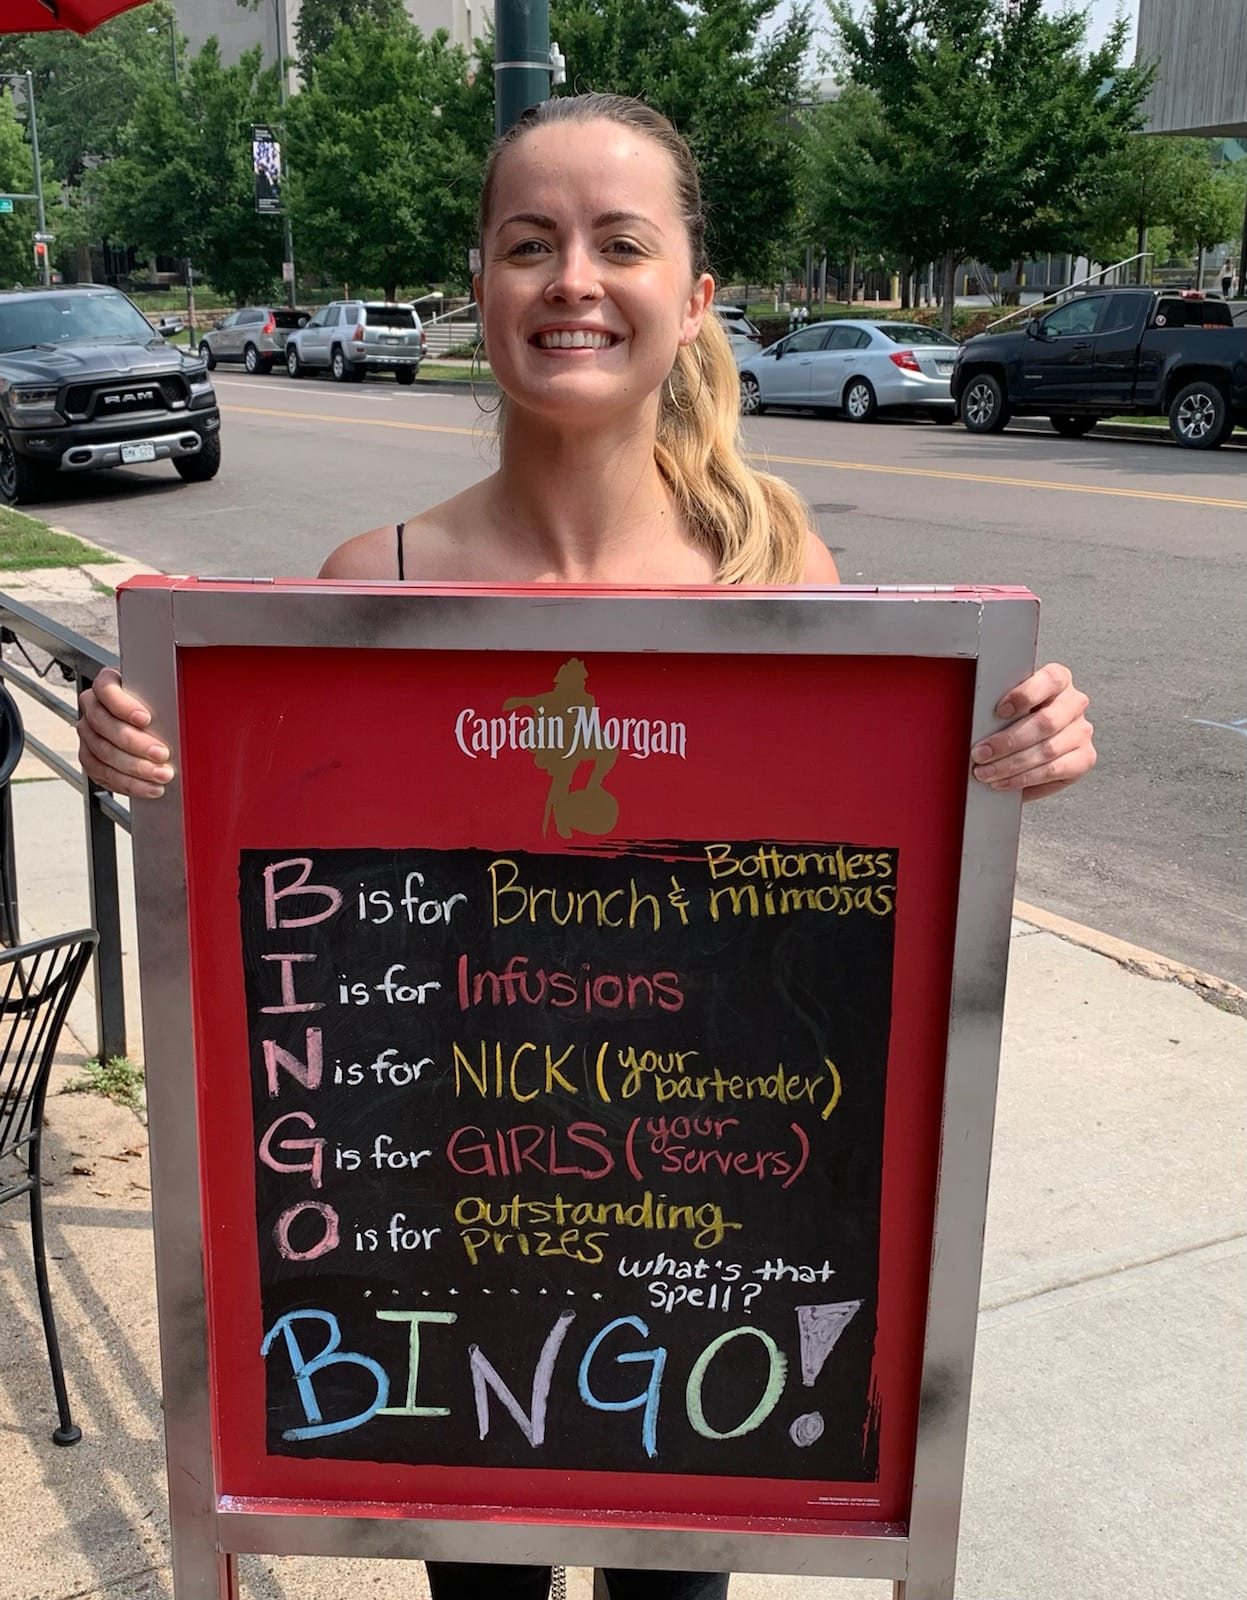 RAM
Captain Morgan
B is for Brunch & Bottomless mimosas
I is for Infusions
N is for NICK (your bartender)
G is for GIRLS (your servers)
O is for outstanding prizes
what's that spell?
BINGO!